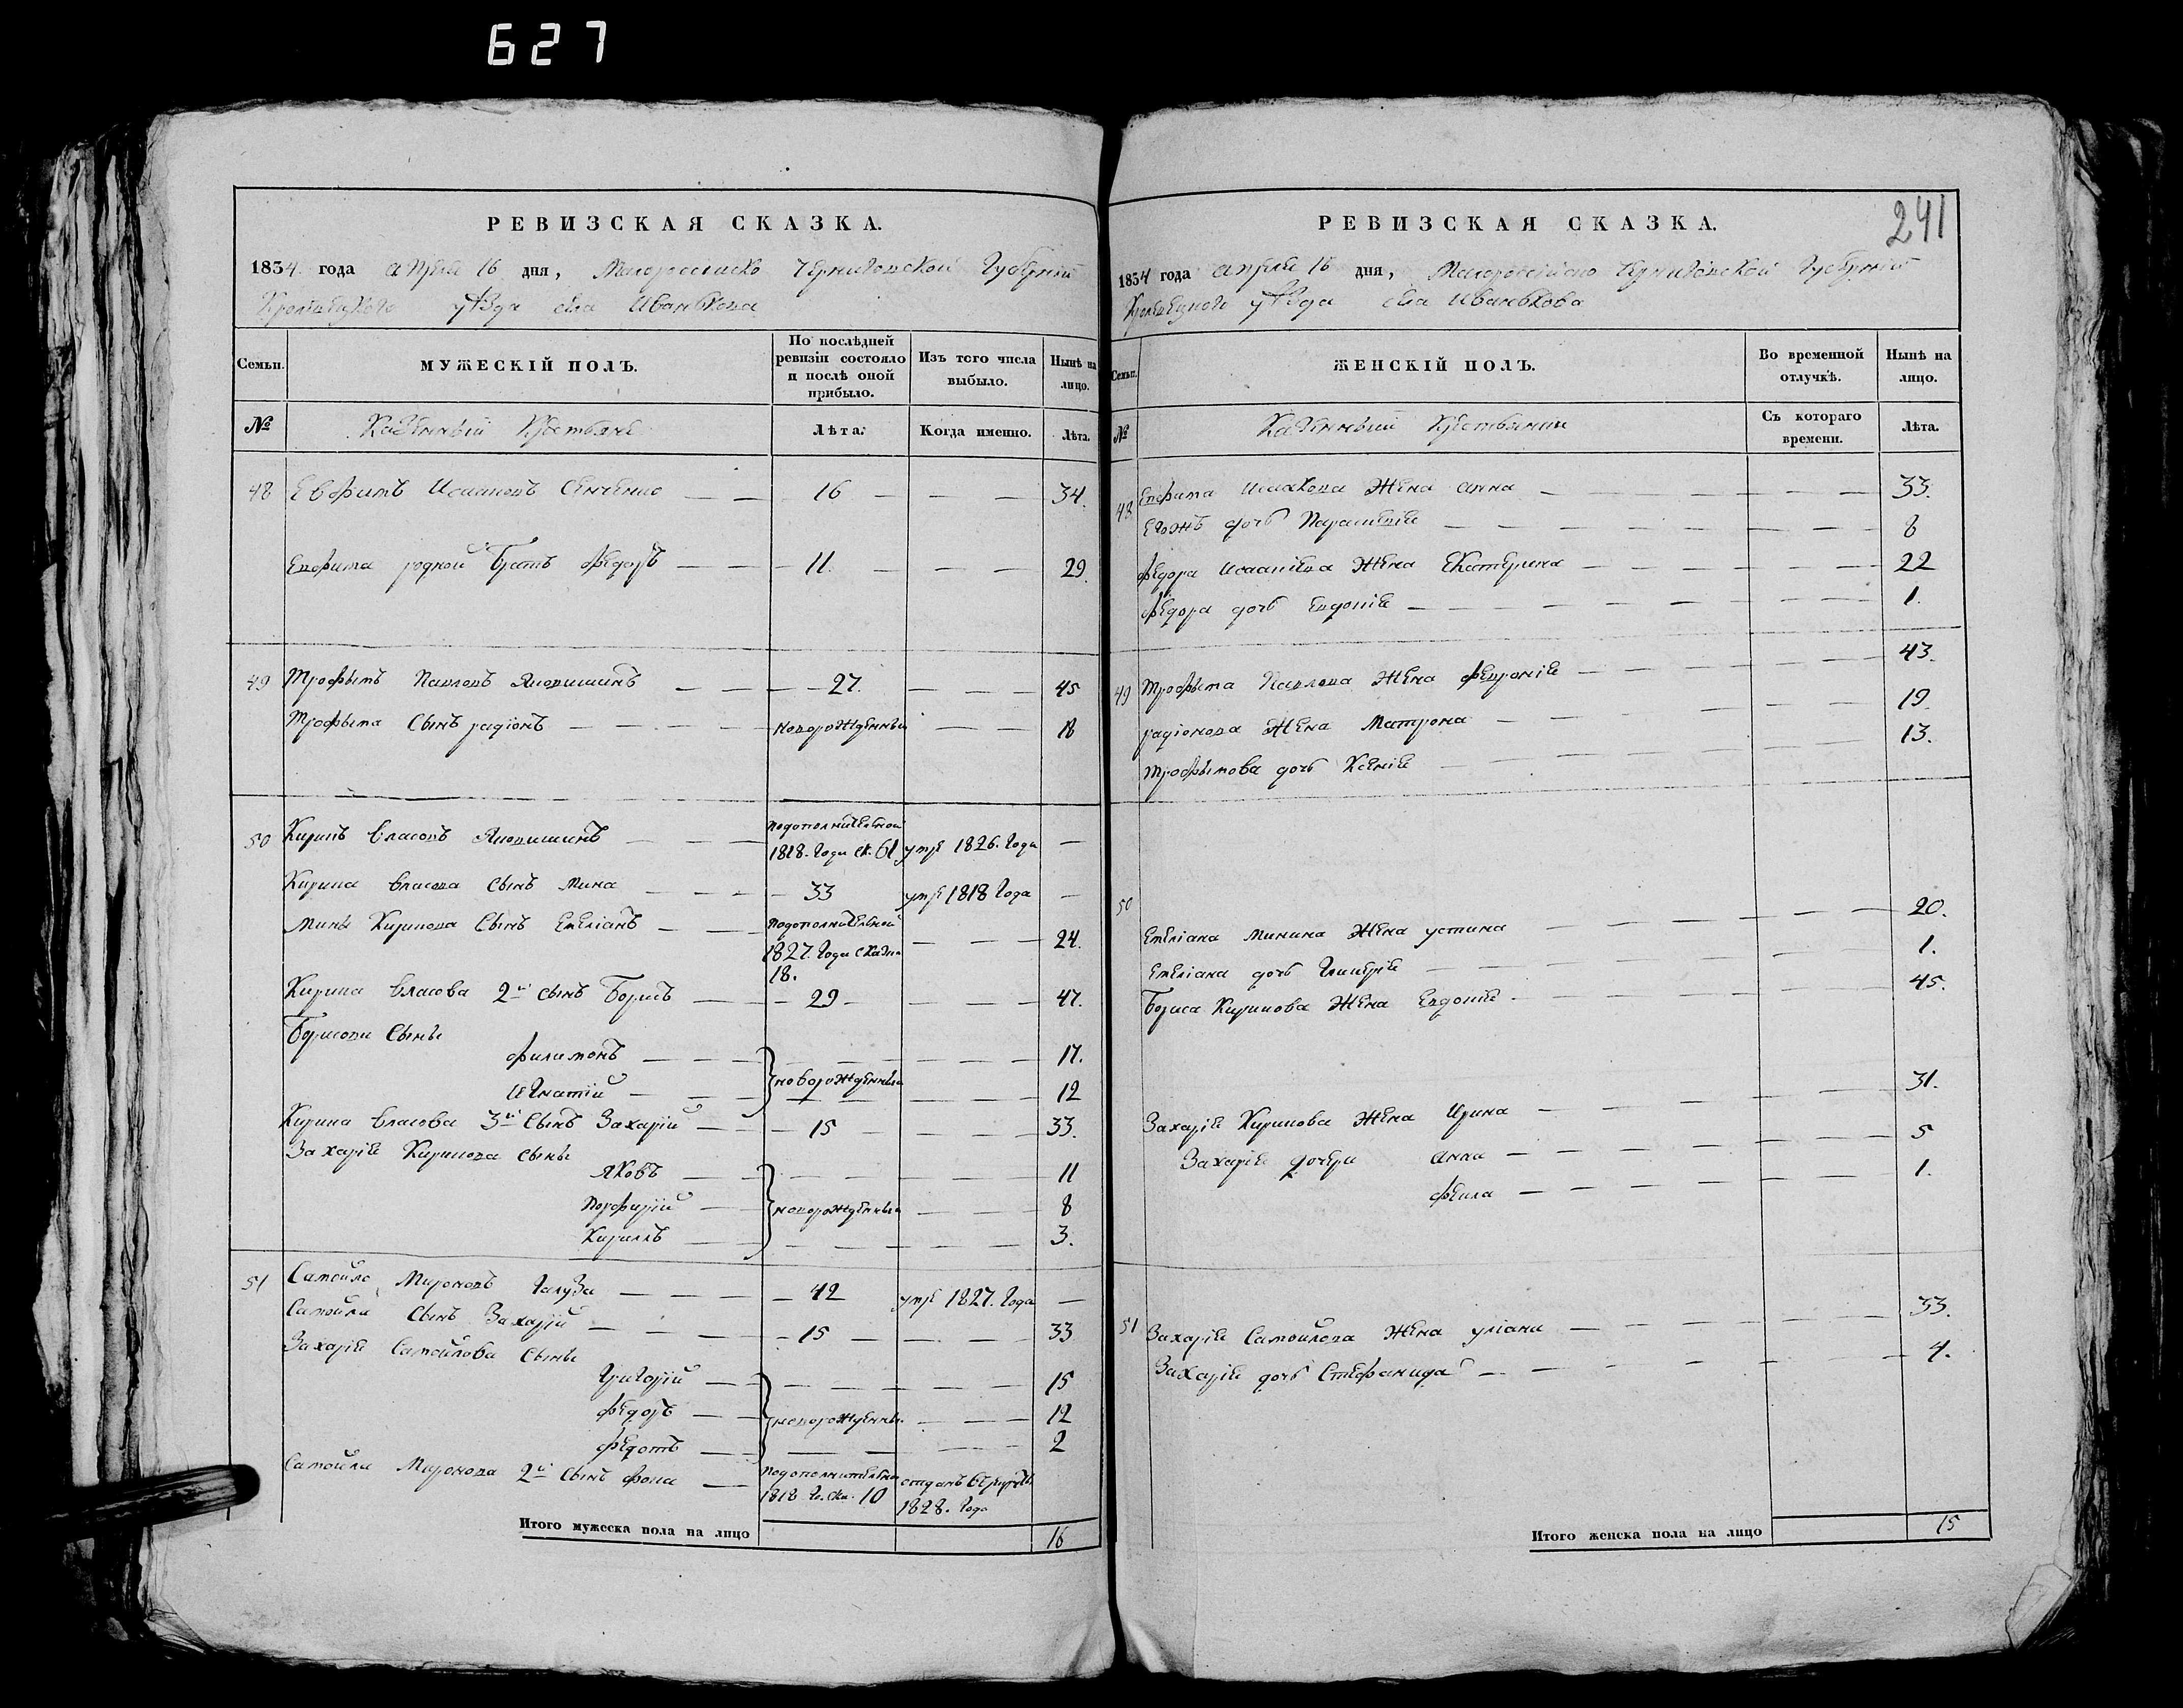 627
РЕВИЗСКАЯ СКАЗКА.
1834 года апреля 16 дня, Малороссийско Черниговской Губерніи
Кролевецкого уѣзда села Иванькова
Семьи.
МУЖЕСКІЙ ПОЛЪ.
По послѣдней ревизіи состояло и послѣ оной прибыло.
Изъ того числа выбыло.
Нынѣ на лицо.
№
Казенный Крестьяне
Лѣта.
Когда именно.
Лѣта.
48 Евфимъ Исааковъ 16 34.
Евфима родной братъ Федоръ 11. 29.
49 Трофымъ Павловъ 27. 45
Трофыма Сынъ радіонъ новорожденный 18
50 Кирилъ Власовъ подополнительной 1818. Года ск. 61 умре 1826. Года
Кирила Власова Сынъ Мина 33 умре 1818 Года
Мины Кирилова Сынъ Емеліанъ подополнительной 1827. Года сказки 18. 24.
Кирила Власова 2й сынъ Борисъ 29 47.
Борисови Сыны
Филимонъ 17.
новорожденные
Игнатій 12
Кирила Власова 3й Сынъ Захарій 15 33.
Захарія Кирилова сыны
Яковъ 11
Порфирій новорожденные 8
Кирилъ 3.
51 Самойло Мироновъ Галуза 42 умре 1827. Года
Самойла Сынъ Захарій 15 33
Захарія Самойлова Сыны
Григорій 15
Федоръ новорожденны. 12
Федотъ 2
Самойла Миронова 2й Сынъ Фома подополнительно 1818 Го. ска. 10 отданъ 1828. Года
Итого мужеска пола на лицо 16
241
РЕВИЗСКАЯ СКАЗКА.
1834 года апреля 16 дня, Малороссійско Черниговской Губерніи
Кролевецкого уѣзда села Иванькова
Семьи.
ЖЕНСКІЙ ПОЛЪ.
Во временной отлучкѣ.
Нынѣ на лицо.
№
Казенный Крестьянки
Съ котораго времени.
Лѣта.
48 Евфима Исаакова Жена Анна 33.
Егожъ дочь Параскевіе 8
Федора Исаакіева Жена Екатерина 22
Федора дочь Евдокіе 1.
49 Трофыма Павлова Жена Февроніе 43.
радіонова Жена Матрона 19
Трофымова дочь Ксеніе 13.
50 Емеліана Минина Жена устина 20.
Емеліана дочь Гликеріе 1.
Бориса Кирилова Жена Евдокіе 45.
Захаріе Кирилова Жена Ирина 31.
Захаріе дочери Анна 5
Фекла 1.
51 Захаріе Самойлова Жена уліана 33.
Захаріе дочь Стефанида 4.
Итого женска пола на лицо 15